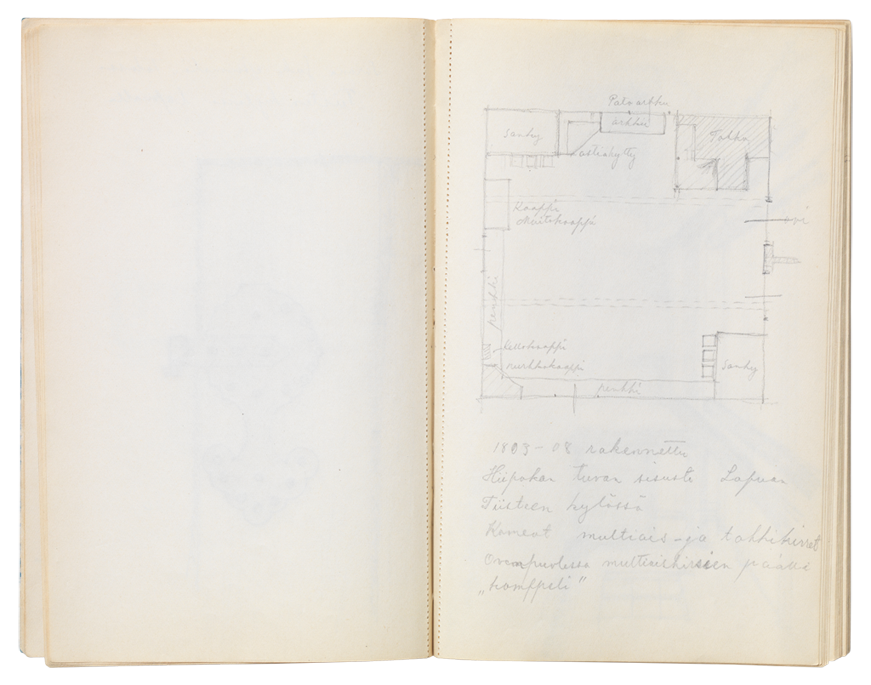 Patoarkku
arkku
sänky
Takka
astiahylly
Kaappi
Maitokaappi
penkki
Kellokaappi
nurkkakaappi
sänky
penkki
1803-08 rakennettu
Hiipakan tuvan sisusta Lapuan
Tiistenn kylässä
Komeat multiais- ja takkihirret
Ovenpuolessa multiaishirsien päällä
„komppeli”